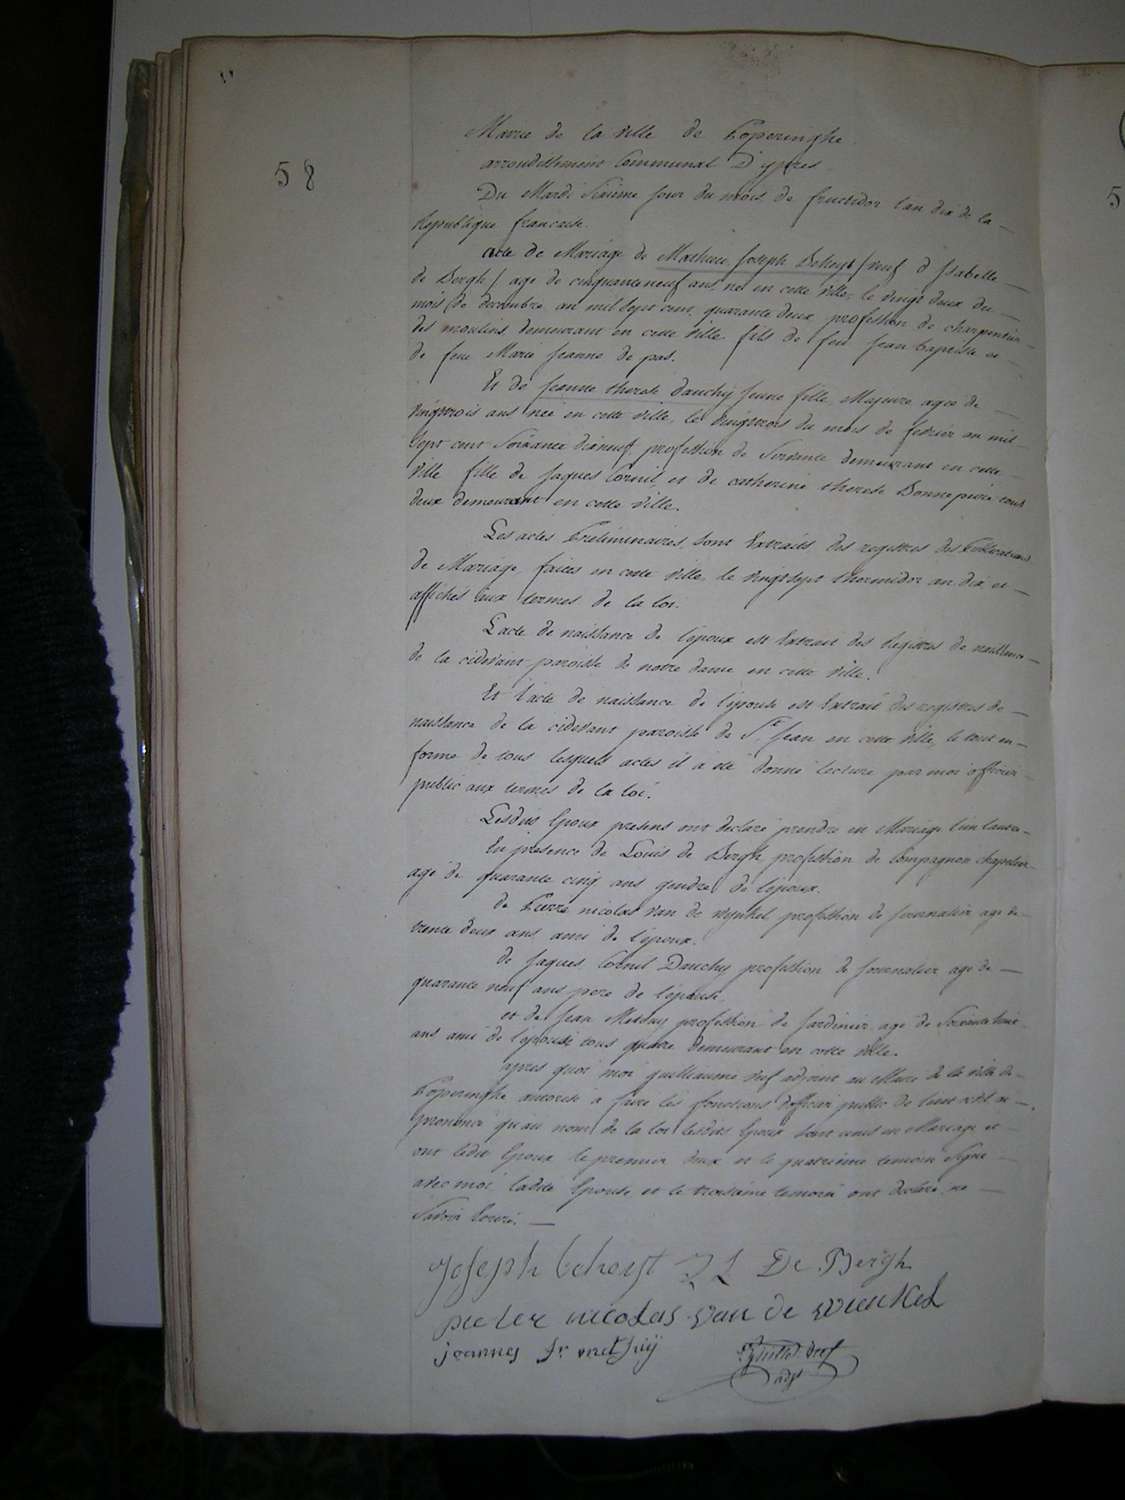 58
Mairie de la ville de Poperinghe
arrondissement Communal D'ypres
Du Mardi Sixieme jour du mois de fructidor l'an dix de la
Republique francaise.
acte de Mariage de Mathieu Joseph Beheyt / veuf d'Isabelle
de Bergh / age de cinquanteneuf ans né en cette ville, le vingt deux du
mois de decembre an mil sept cent quarante deux profession de charpentier
des moulins demeurant en cette ville fils de feu Jean baptiste et
de feue Marie Jeanne de pas.
Et de Jeanne therese dauchy Jeune fille Majeure agee de
vingttrois ans née en cette ville, le vingttrois du mois de fevrier an mil
Sept cent Soixante dixneuf profession de Servante demeurant en cette
ville fille de Jaques Cornil et de catherine therese Bonnepiere tous
deux demeurant en cette ville.
Les actes Preliminaires, sont Extraits des registres des Publications
de Mariage faites en cette ville, le vingtsept thermidor an dix et
affichés aux termes de la loi.
L'acte de naissance de l'epoux est Extrait des Registres de naissance
de la cidevant paroisse de notre dame en cette ville.
Et l'acte de naissance de l'epouse est Extrait des registres de
naissance de la cidevant paroisse de St Jean en cette ville, le tout en
forme de tous lesquels actes il a été donné lecture par moi officier
public aux termes de la loi.
Lesdits Epoux presens ont declaré prendre en Mariage l'un lautre
En presence de Louis de Bergh profession de Compagnon chapelier
agé de quarante cinq ans gendre de l'epoux.
de Pierre nicolas van de wynkel profession de Journalier age de
trente deux ans ami de l'epoux.
de Jaques Cornil Dauchy profession de Journalier age de
quarante neuf ans pere de l'epouse
et de Jean profession de Jardinier age de
ans ami de l'epouse tous quatre demeurant en cette ville.
apres quoi moi guilleaume adjoint au Maire de la ville de
Poperinghe autorisé à faire les fonctions d'officier public de l'etat civil ai
prononcé qu'au nom de la loi lesdits Epoux sont unis en Mariage et
ont ledit Epoux le premier deux et le quatrieme temoin Signé
avec moi ladite Epouse et le troisieme temoin ont declaré ne
Savoir Ecrire.
Joseph De Bergh
pieter nicolas van de winckel
joannes fr
adjt